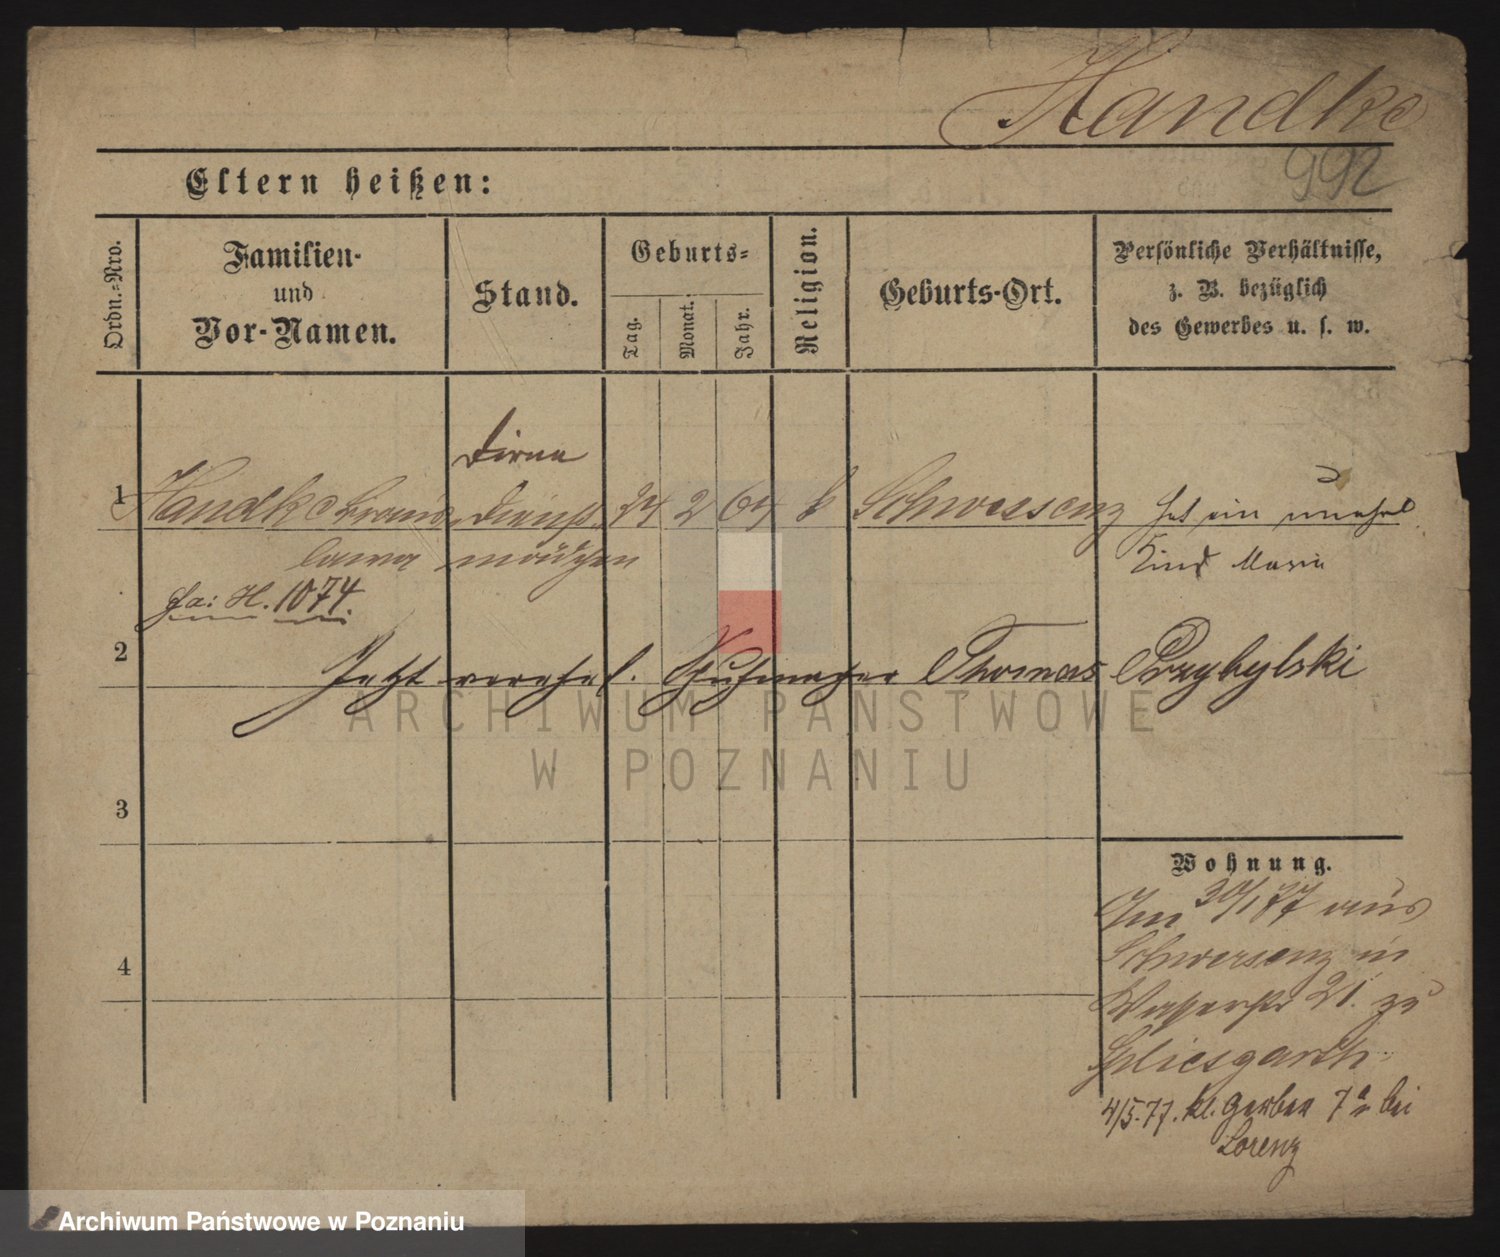 Handke
992
Eltern heißen:
Ordn.-Nro.
Familien-
und
Vor-Namen.
Stand.
Geburts-
Tag.
Monat.
Jahr.
Religion.
Geburts-Ort.
Persönliche Verhältnisse,
z. B. bezüglich
des Gewerbes u. s. w.
Dirne
1 Handke Bronis Dienst 24 2 64 k Schwersenz hat ein unehel
lawa mädchen Kind Marie
fa: H. 1074.
2
Jetzt verehel. Schuhmacher Thomas Przybylski
3
Wohnung.
Am 30/1 77 aus
Schwersenz in
4
Wasserstr 21. zu
4/5.77. kl. Gerber 7a bei
Lorenz
ARCHIWUM PAŃSTWOWE
W POZNANIU
Archiwum Państwowe w Poznaniu